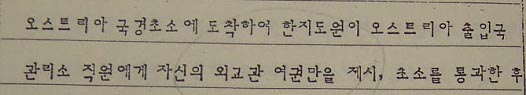 오스트리아 국경초소에 도착하여 한지도원이 오스트리아 출입국
관리소 직원에게 자신의 외교관 여권만을 제시, 초소를 통과한 후